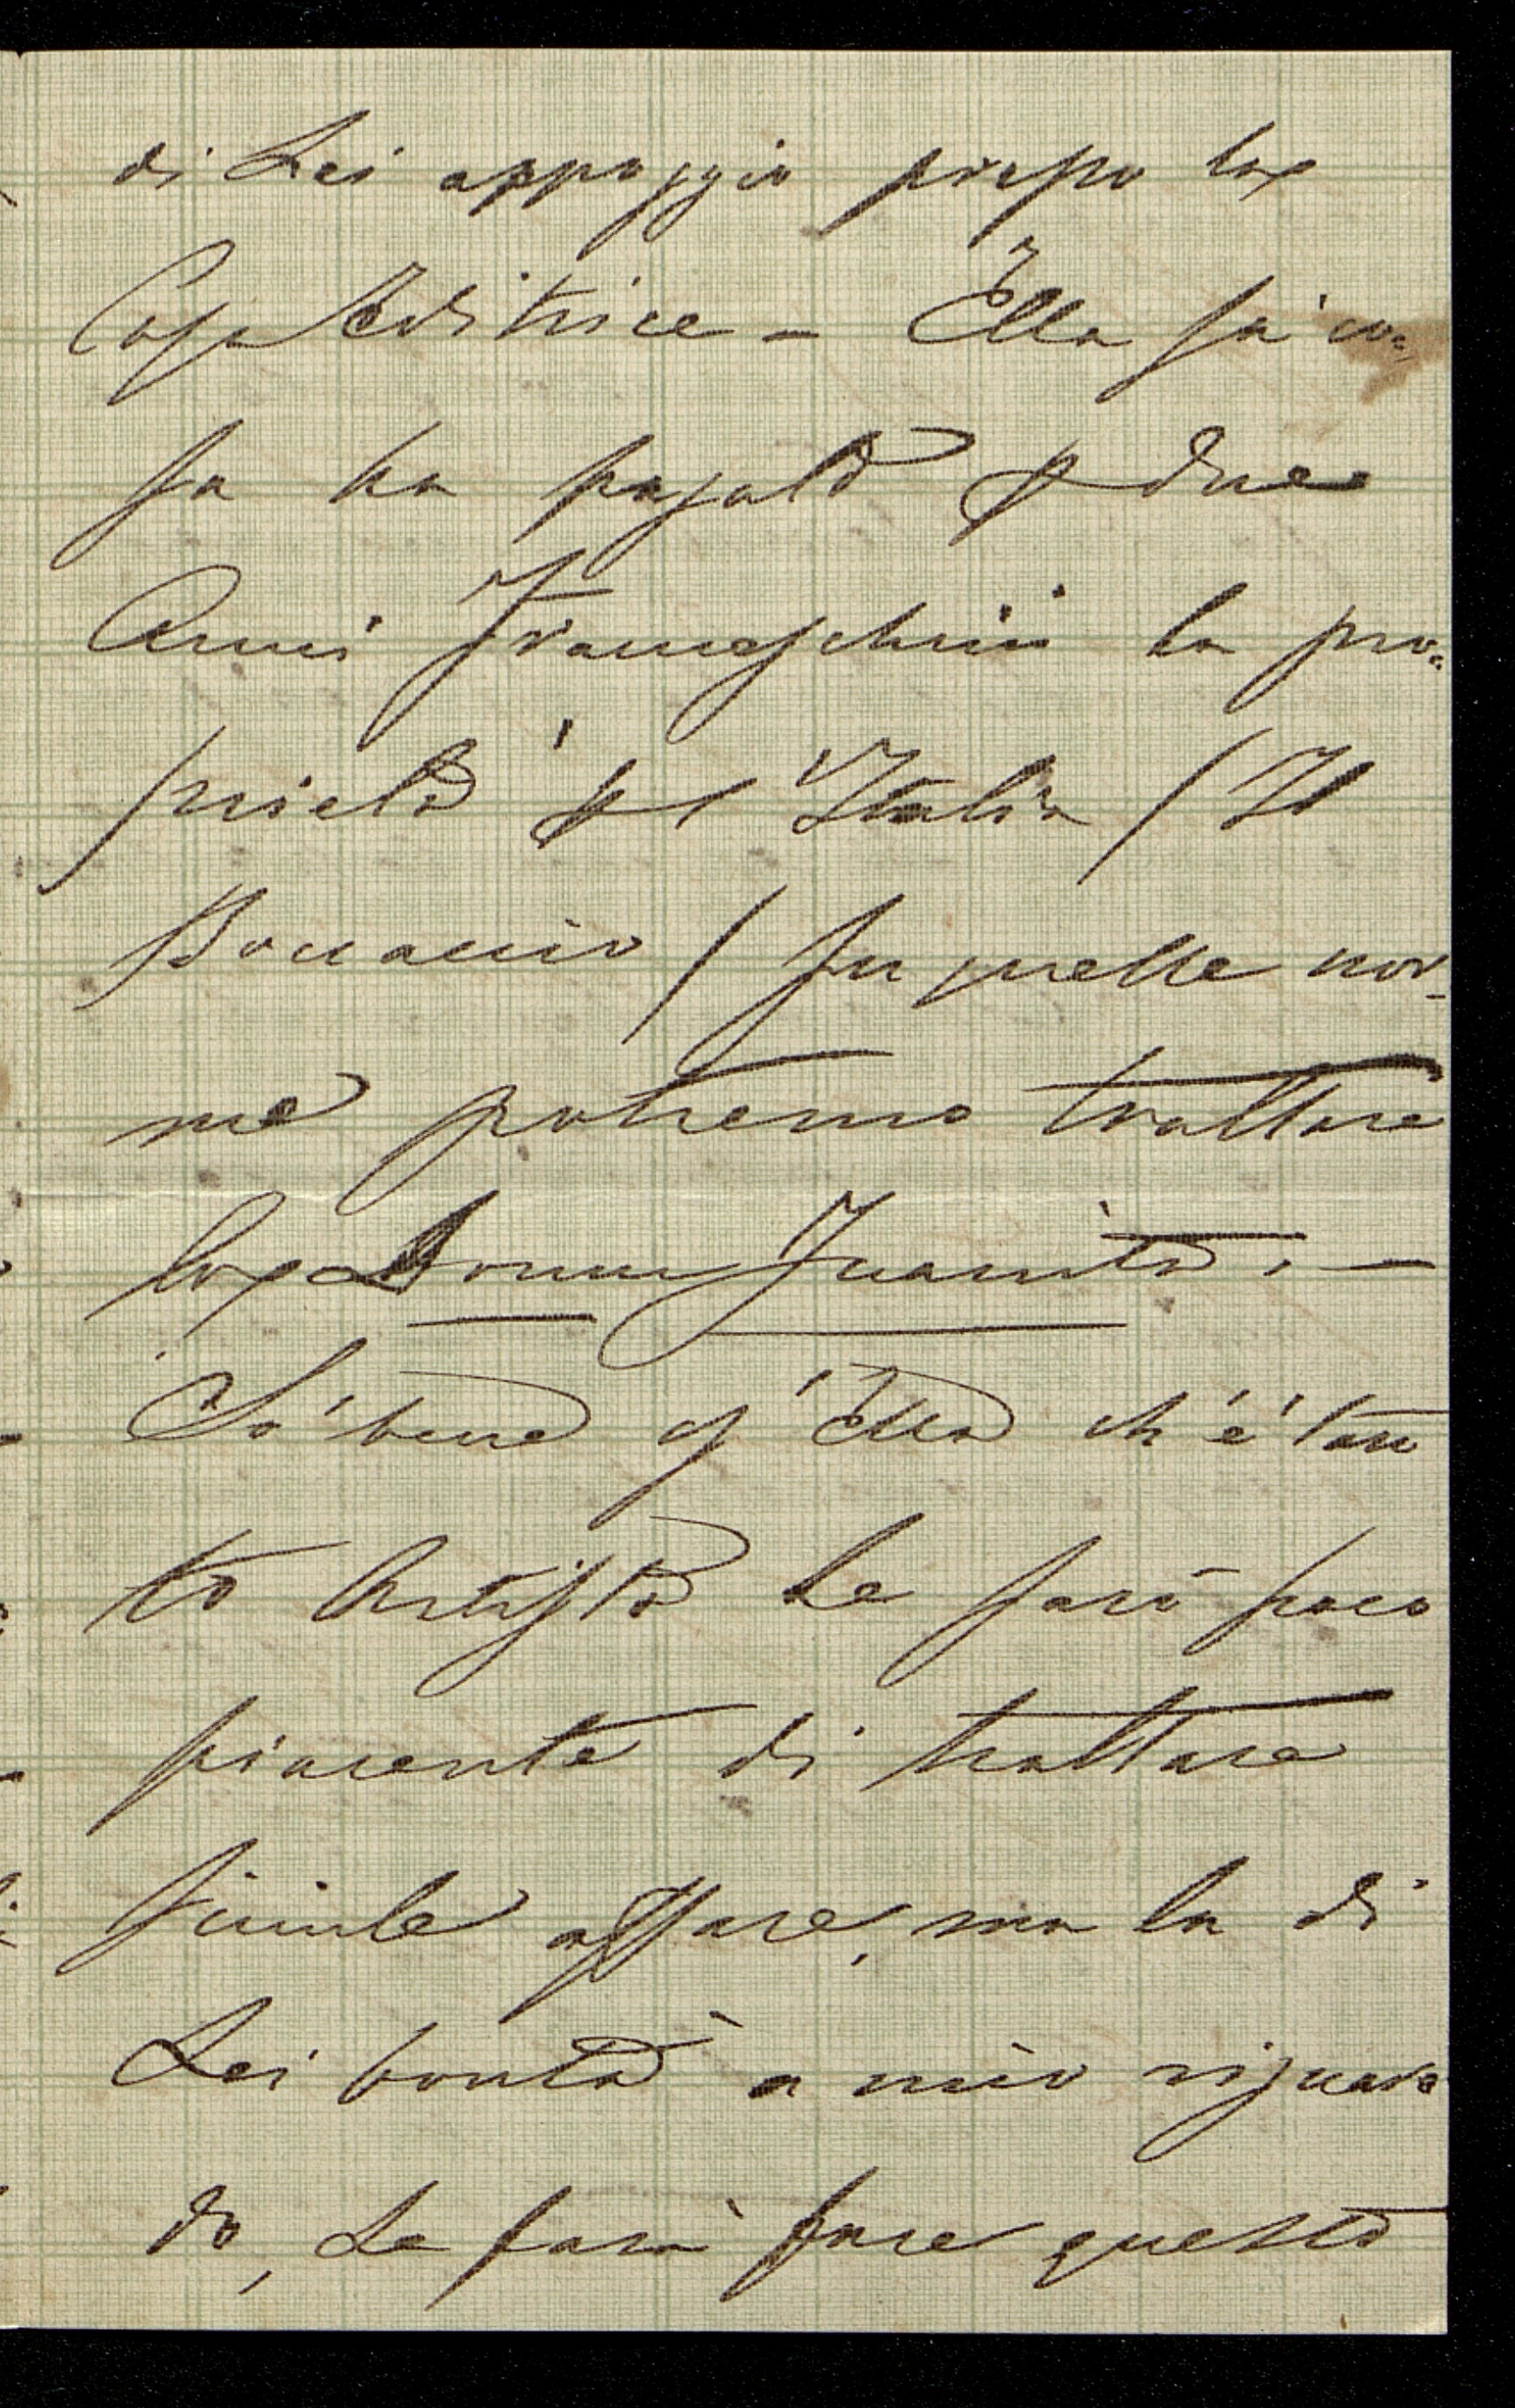 di Lei appoggio presso la
Casa Editrice – Ella sa co=
sa ha pagato p due
Anni Franceschini la pro=
prietà p l'Italia / Il
Boccaccio / Su quelle nor-
me potremo trattare
la Donna Juanita. –
So' bene ch' Ella ch' è tan
to Artista Le sarà poco
piacente di trattare
simile affare, ma la di
Lei bontà a mio riguar=
do, Le farà fare questo